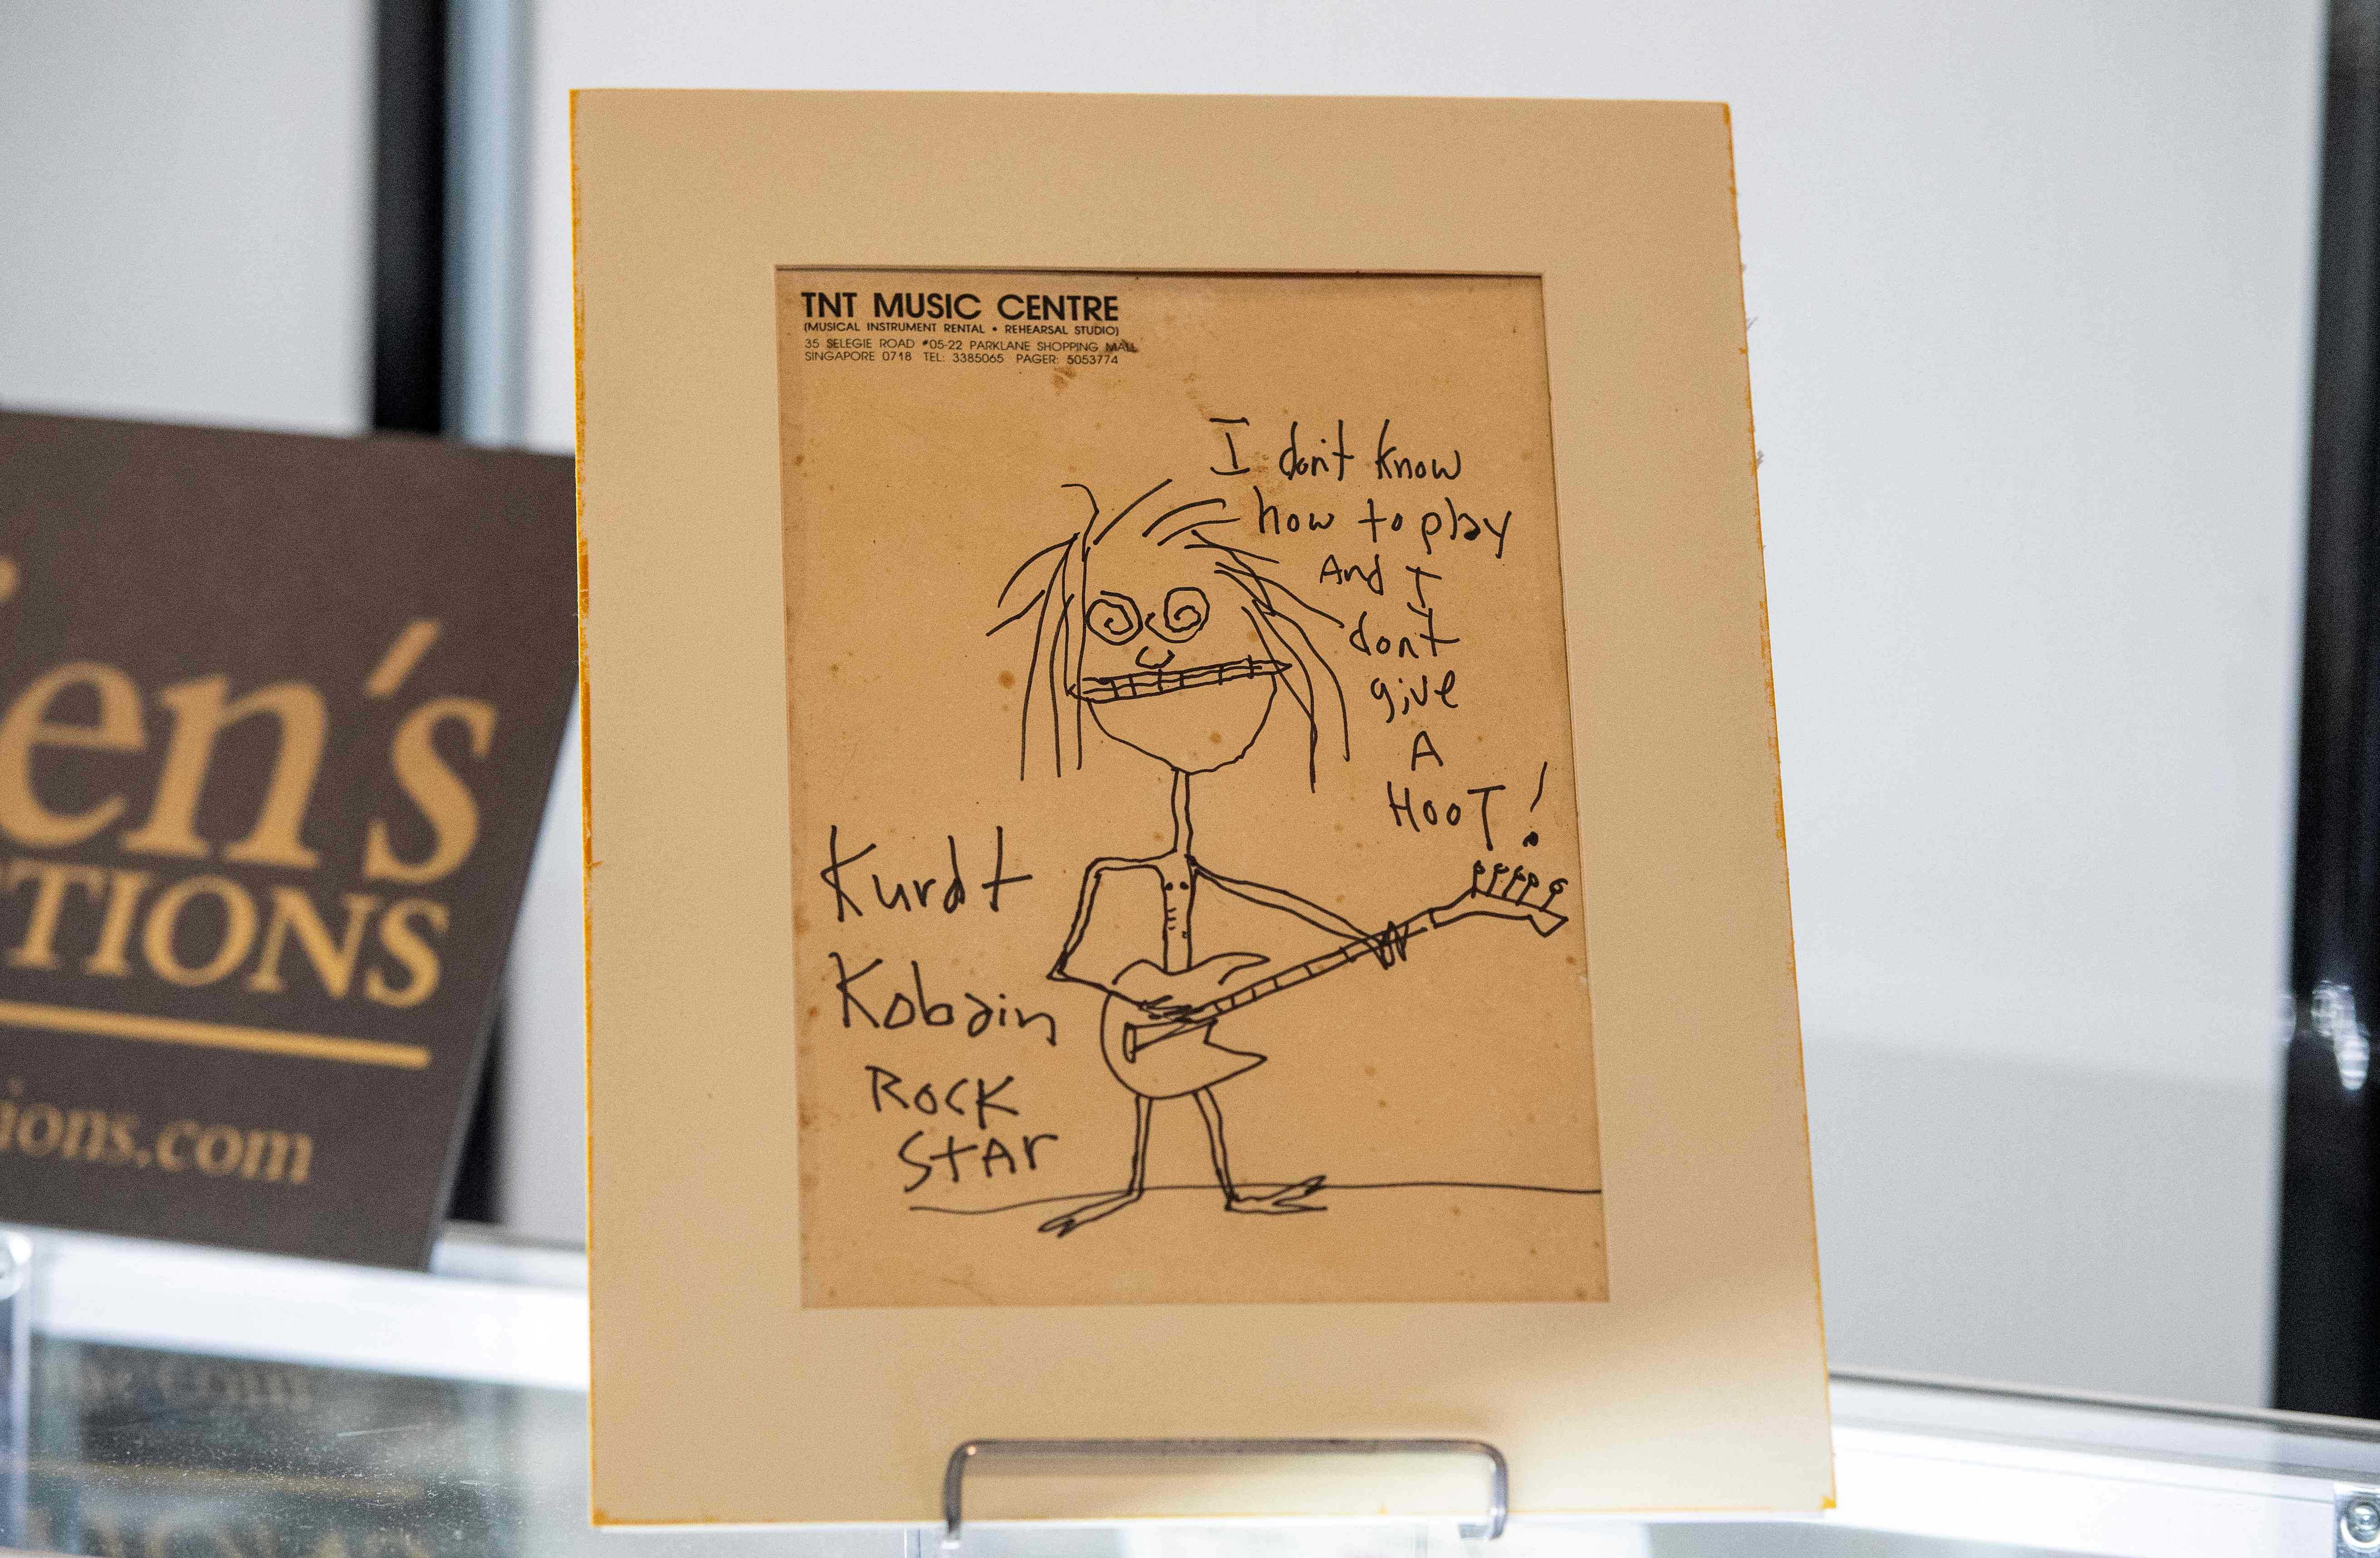 TNT MUSIC CENTRE
(MUSICAL INSTRUMENT RENTAL • REHEARSAL STUDIO)
35 SELEGIE ROAD #05-22 PARKLANE SHOPPING MALL
SINGAPORE 0718 TEL: 3385065 PAGER: 5053774
I don't know
how to play
And I
dont
give
A
HOOT!
Kurdt
Kobain
ROCK
STAr
en's
TIONS
ions.com